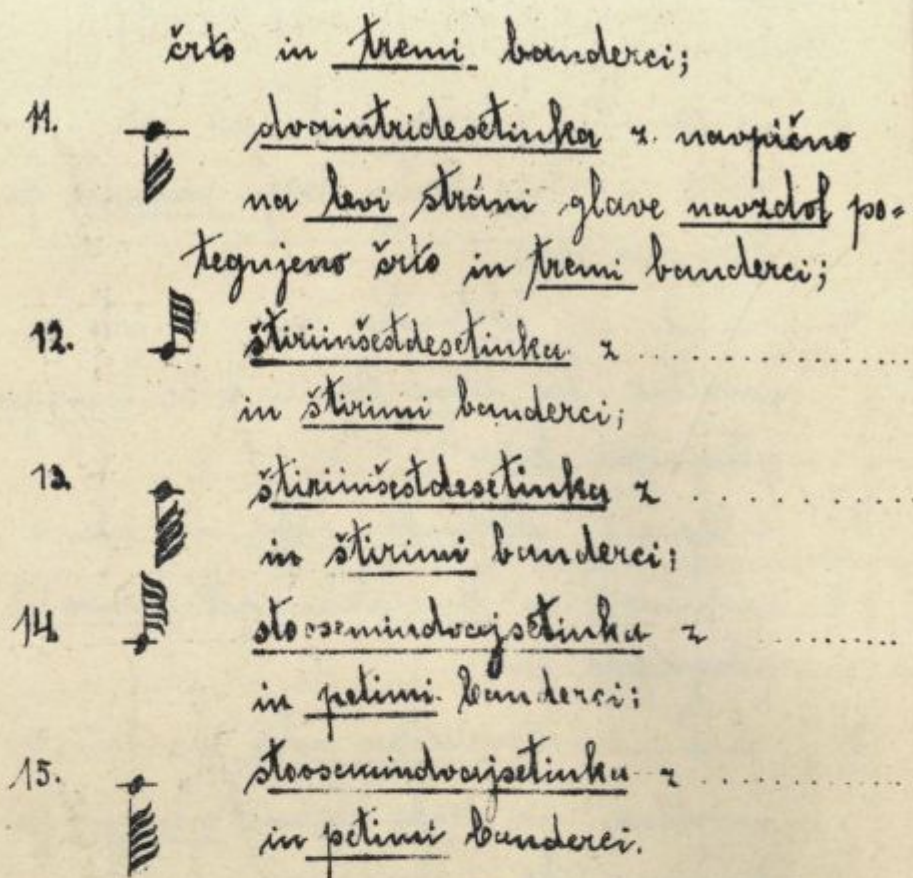 črto in tremi banderci;
11. dvaintridesetinka z navpično
na levi strani glave navzdol po=
tegnjeno črto in tremi banderci;
12. štiriinšestdesetinka z ..................
in štirimi banderci;
13. štiriinšestdesetinka z ..............
in štirimi banderci;
14. stoosemindvajsetinka z ..........
in petimi banderci;
15. stoosemindvajsetinka z ..............
in petimi banderci.